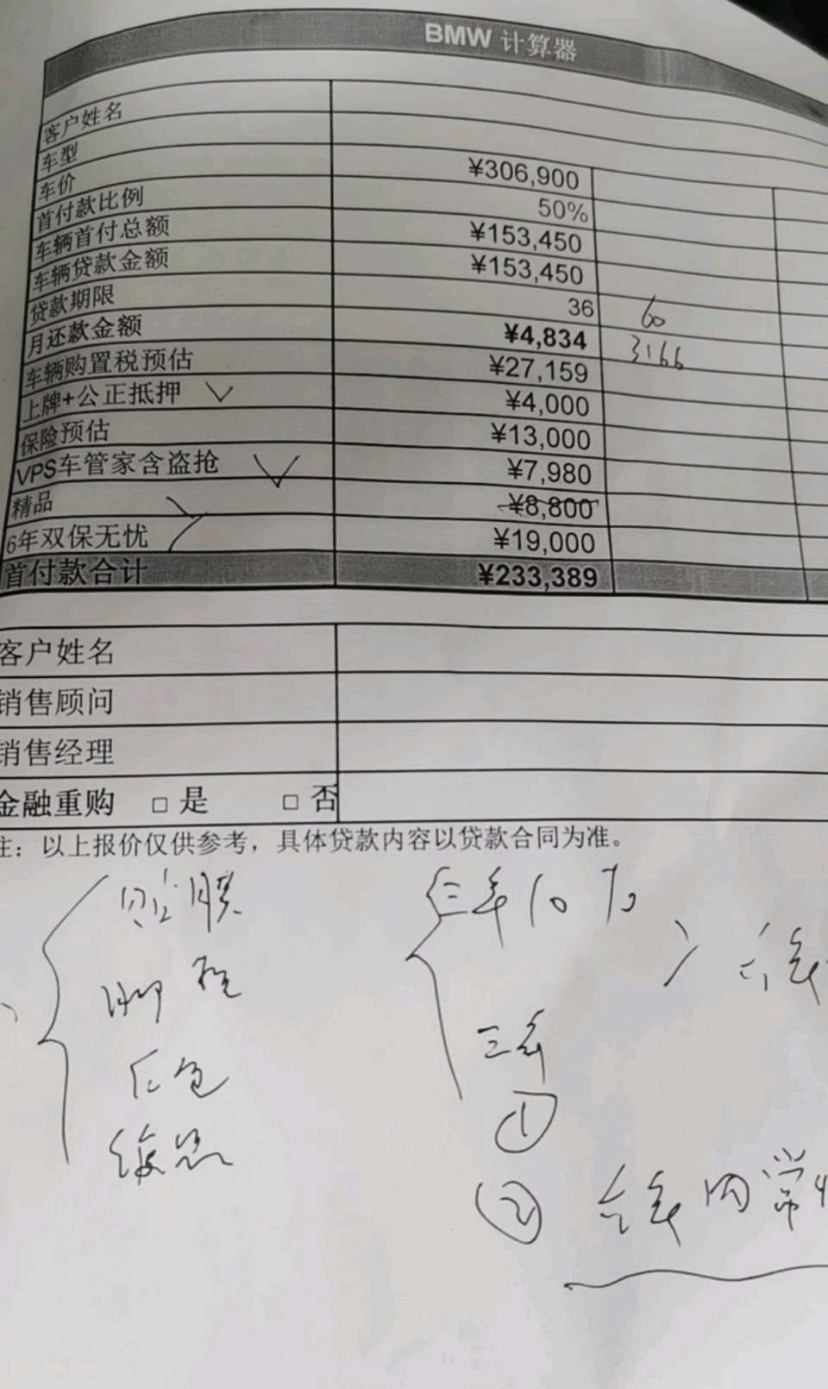 BMW 计算器
客户姓名
车型
车价 ¥306,900
首付款比例 50%
车辆首付总额 ¥153,450
车辆贷款金额 ¥153,450
贷款期限 36 60
月还款金额 ¥4,834 3166
车辆购置税预估 ¥27,159
上牌+公正抵押 ¥4,000
保险预估 ¥13,000
VPS车管家含盗抢 ¥7,980
精品 ¥8,800
6年双保无忧 ¥19,000
首付款合计 ¥233,389
客户姓名
销售顾问
销售经理
金融重购 □ 是 □ 否
注：以上报价仅供参考，具体贷款内容以贷款合同为准。
贴膜
三年10%
脚垫
三年
①
②